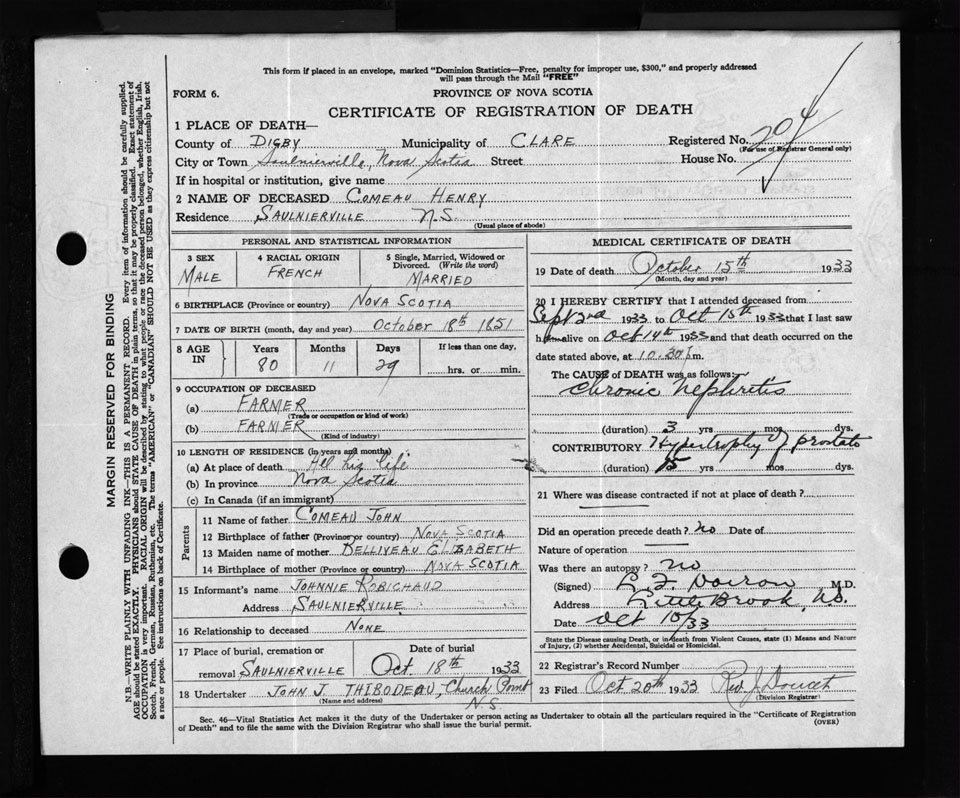 This form if placed in an envelope, marked "Dominion Statistics—Free, penalty for improper use, $300," and properly addressed
will pass through the Mail "FREE"
FORM 6.
PROVINCE OF NOVA SCOTIA
CERTIFICATE OF REGISTRATION OF DEATH
1 PLACE OF DEATH—
County of DIGBY Municipality of CLARE Registered No. 204
(For use of Registrar General only)
City or Town Saulnierville, Nova Scotia Street House No.
If in hospital or institution, give name
2 NAME OF DECEASED COMEAU HENRY
Residence SAULNIERVILLE N.S.
(Usual place of abode)
PERSONAL AND STATISTICAL INFORMATION
3 SEX
MALE
4 RACIAL ORIGIN
FRENCH
5 Single, Married, Widowed or
Divorced. (Write the word)
MARRIED
6 BIRTHPLACE (Province or country) NOVA SCOTIA
7 DATE OF BIRTH (month, day and year) October 18th 1851
8 AGE
IN
Years Months Days If less than one day,
80 11 29 hrs. or min.
9 OCCUPATION OF DECEASED
(a) FARMER
(Trade or occupation or kind of work)
(b) FARMER
(Kind of industry)
10 LENGTH OF RESIDENCE (in years and months)
(a) At place of death All his life
(b) In province Nova Scotia
(c) In Canada (if an immigrant)
Parents
11 Name of father COMEAU JOHN
12 Birthplace of father (Province or country) NOVA SCOTIA
13 Maiden name of mother DELLIVEAU ELIZABETH
14 Birthplace of mother (Province or country) NOVA SCOTIA
15 Informant's name JOHNNIE ROBICHAUD
Address SAULNIERVILLE
16 Relationship to deceased NONE
17 Place of burial, cremation or
removal SAULNIERVILLE
Date of burial
Oct. 18th 1933
18 Undertaker JOHN J. THIBODEAU, Church Point
(Name and address)
N.S.
MEDICAL CERTIFICATE OF DEATH
19 Date of death October 15th 1933
(Month, day and year)
20 I HEREBY CERTIFY that I attended deceased from
Sept 2nd 1933 to Oct 15th 1933 that I last saw
him alive on Oct 14th 1933 and that death occurred on the
date stated above, at 10.30 m.
The CAUSE of DEATH was as follows:
Chronic Nephritis
(duration) 3 yrs mos dys.
CONTRIBUTORY Hypertrophy of prostate
(duration) 15 yrs mos dys.
21 Where was disease contracted if not at place of death?
Did an operation precede death? no Date of
Nature of operation
Was there an autopsy? no
(Signed) L. F. Doiron M.D.
Address Little Brook, N.S.
Date Oct /33
State the Disease causing Death, or in death from Violent Causes, state (1) Means and Nature
of Injury, (2) whether Accidental, Suicidal or Homicidal.
22 Registrar's Record Number
23 Filed Oct 20th 1933 Rev. J. Doucet
(Division Registrar)
Sec. 46—Vital Statistics Act makes it the duty of the Undertaker or person acting as Undertaker to obtain all the particulars required in the "Certificate of Registration
of Death" and to file the same with the Division Registrar who shall issue the burial permit.
(OVER)
MARGIN RESERVED FOR BINDING
N.B.—WRITE PLAINLY WITH UNFADING INK—THIS IS A PERMANENT RECORD. Every item of information should be carefully supplied.
AGE should be stated EXACTLY. PHYSICIANS should STATE CAUSE OF DEATH in plain terms, so that it may be properly classified. Exact statement of
OCCUPATION is very important. RACIAL ORIGIN will be described by stating to what people or race the deceased person belonged, whether English, Irish,
Scotch, French, German, Russian, Ruthenian, etc. The terms "AMERICAN" or "CANADIAN" SHOULD NOT BE USED as they express citizenship but not
a race or people. See instructions on back of Certificate.